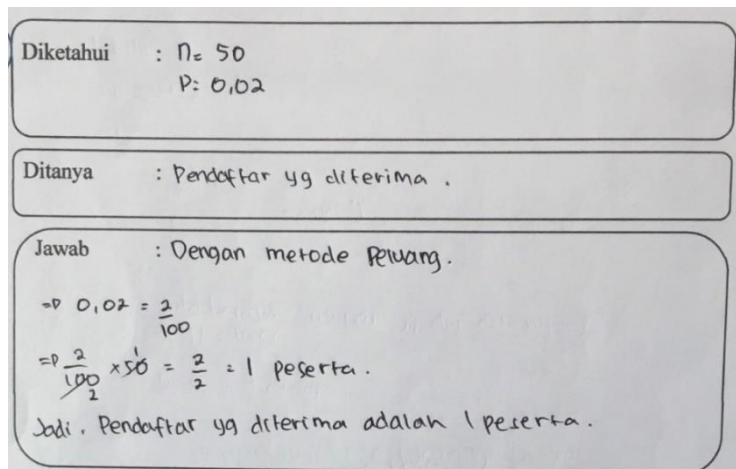 Diketahui : n = 50
P : 0,02
Ditanya : Pendaftar yg diterima .
Jawab : Dengan metode Peluang.
=D 0,02 = 2/100
=D 2/100 × 50 = 2/2 = 1 peserta.
2 1
Jadi, Pendaftar yg diterima adalah 1 peserta.